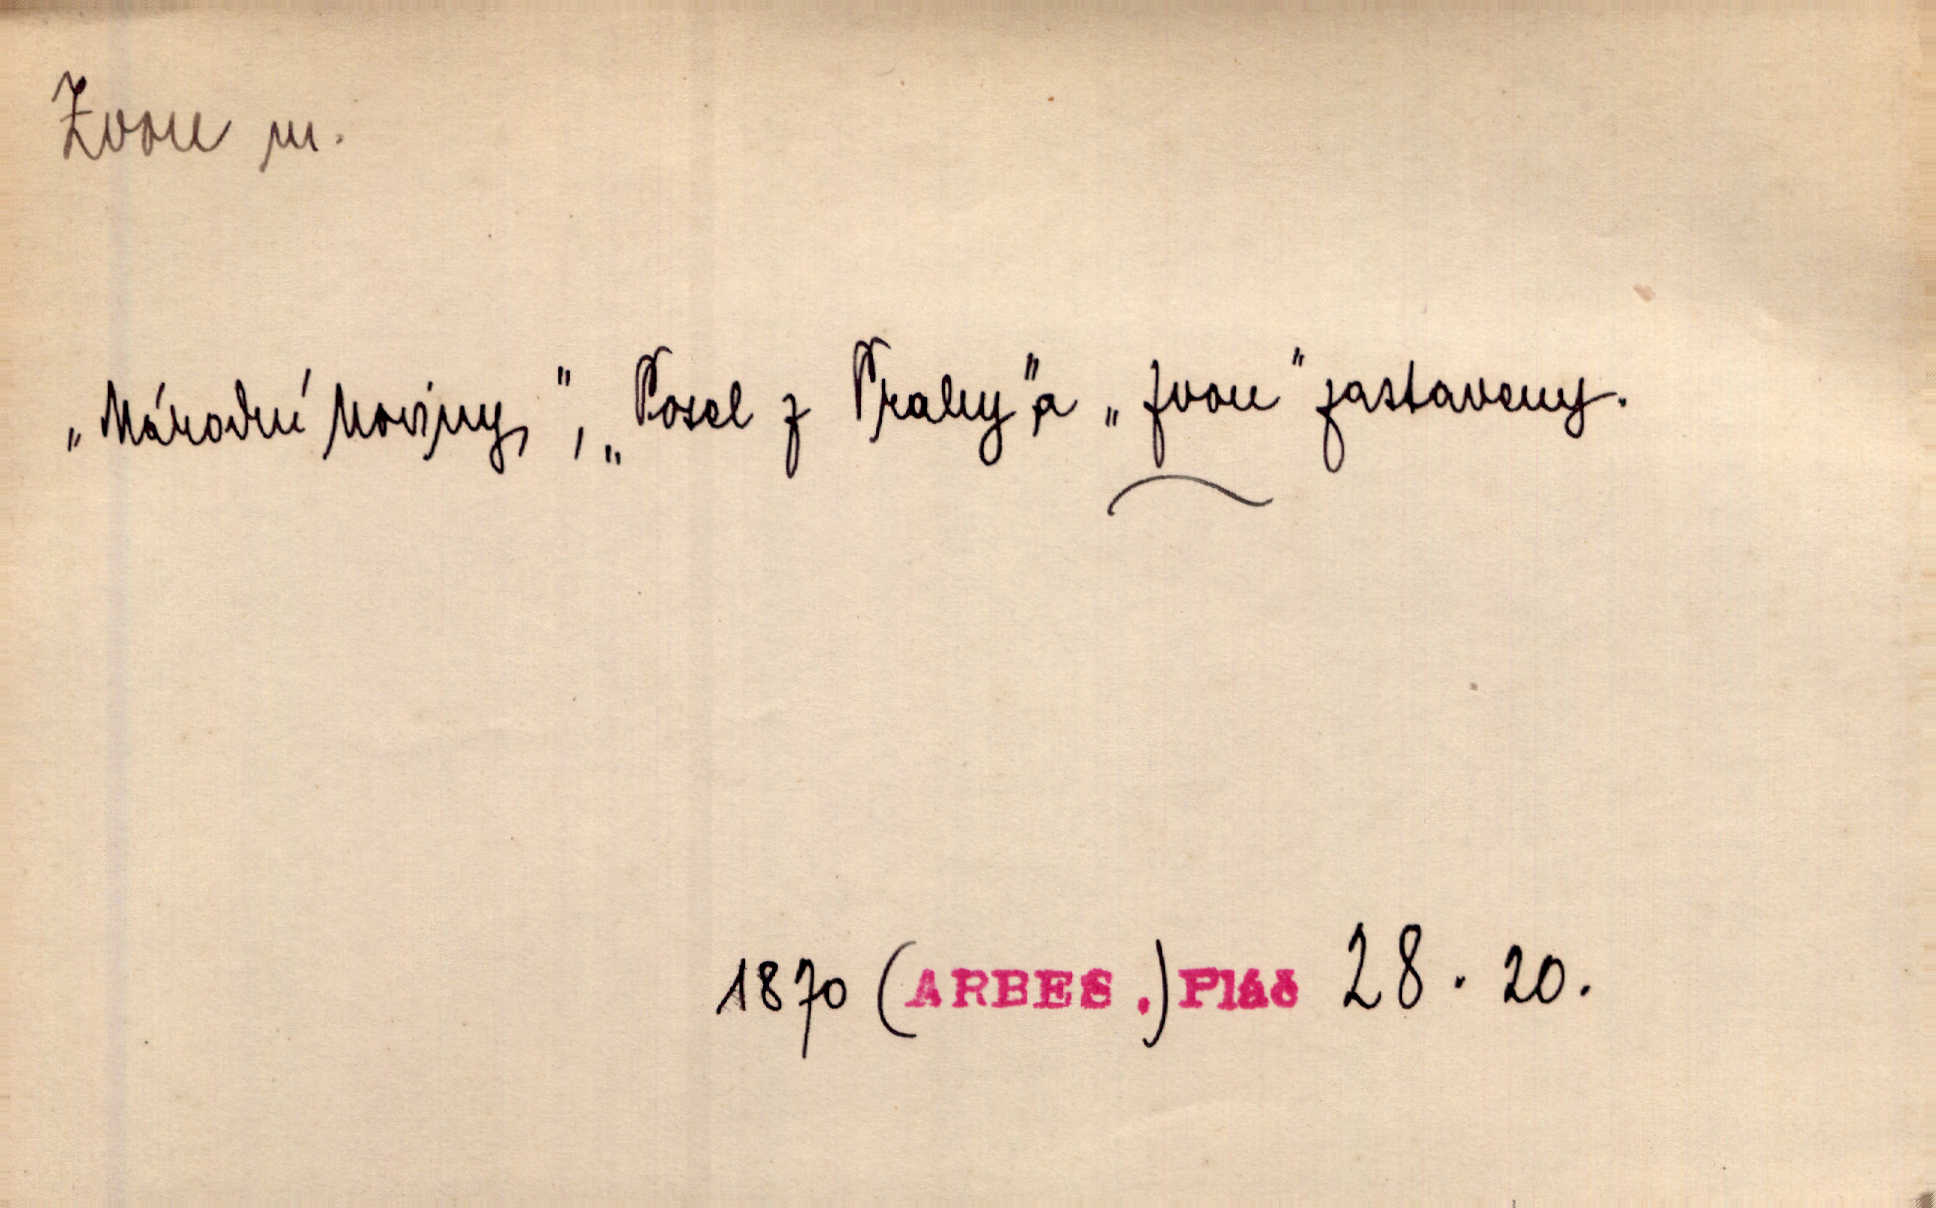 Zvon m.
„Národní Noviny,", „Posel z Prahy" a „Zvon" zastaveny.
1870 (ARBES.) Pláč 28. 20.